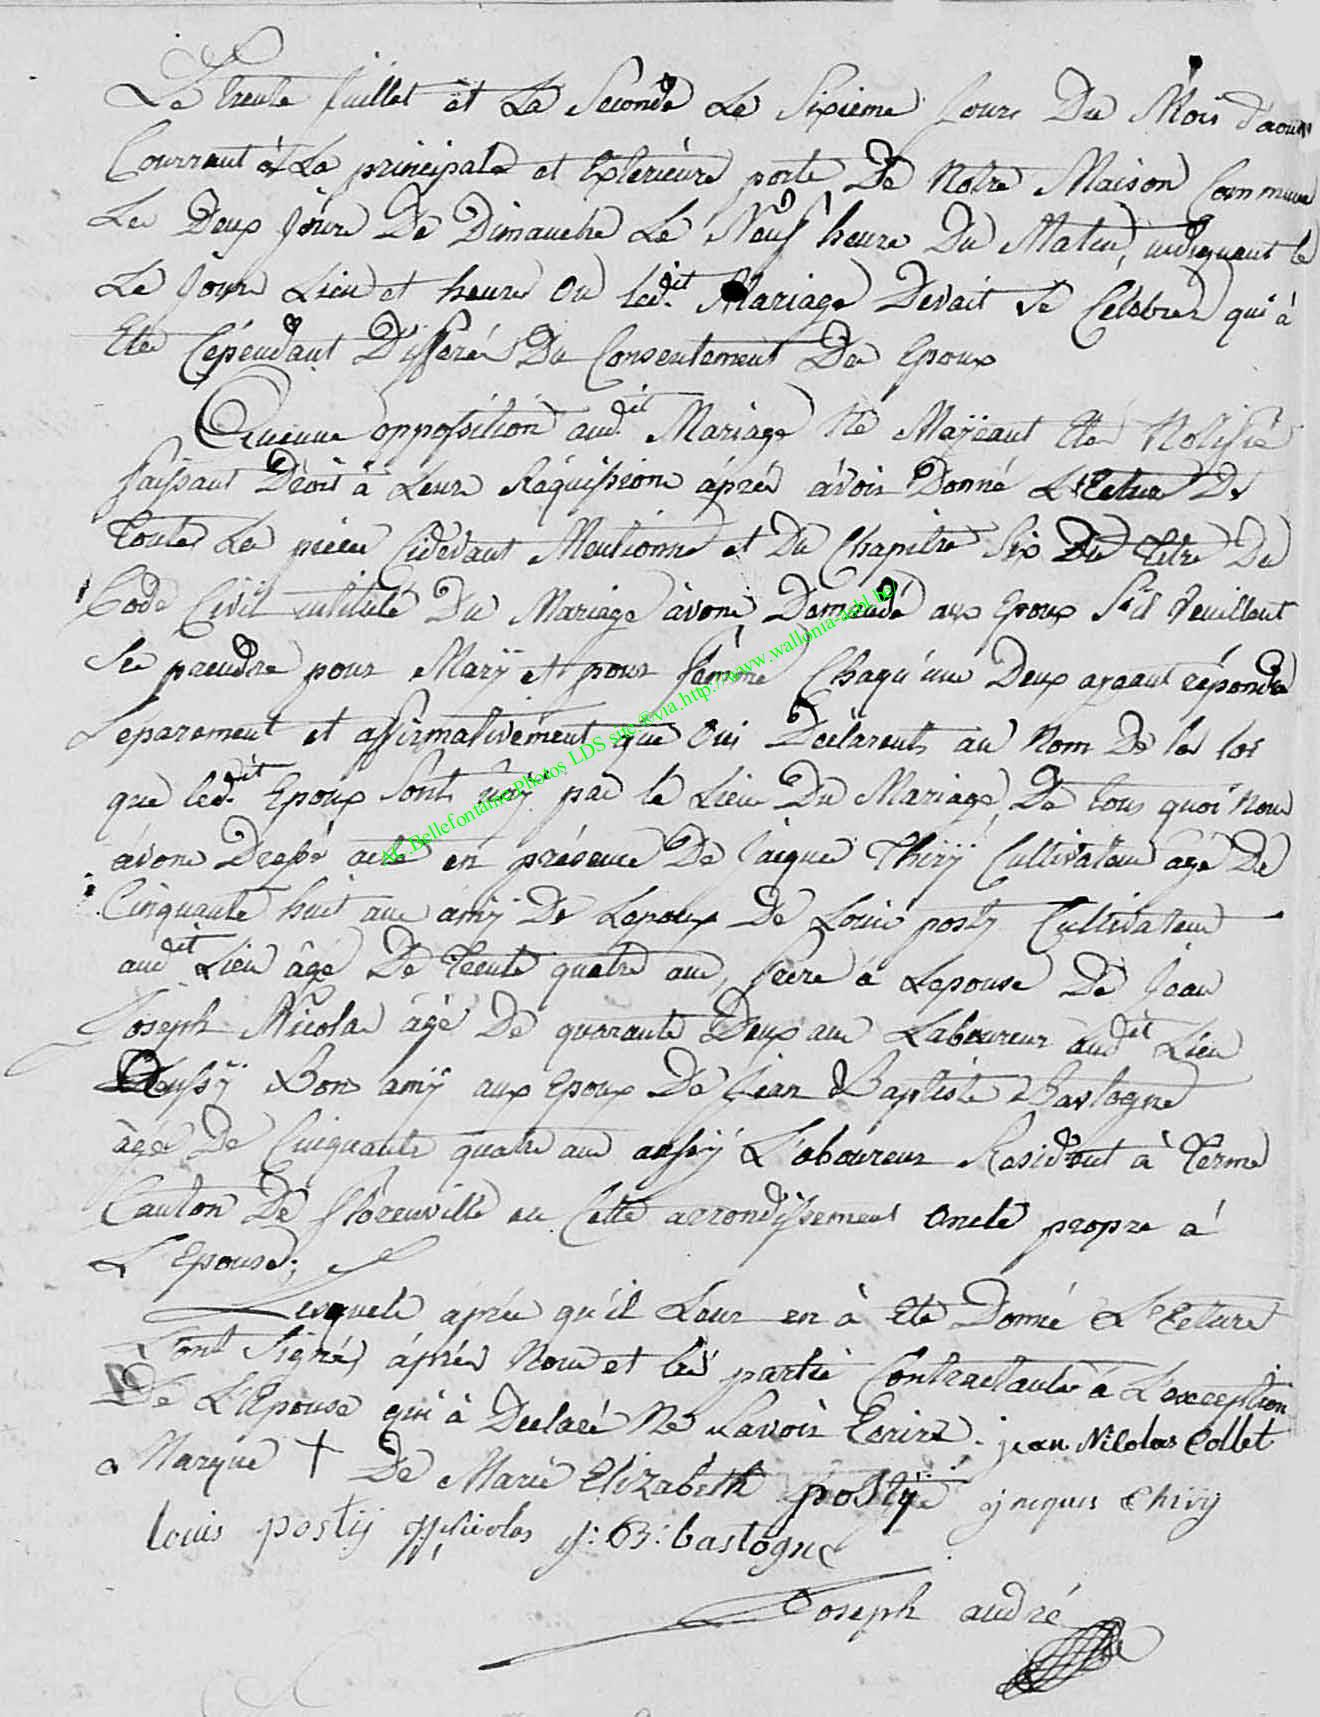 Le trente Juillet et La Seconde Le Sixieme Jour Du Mois d'aout
Courrant à La principale et Exterieure porte De Notre Maison Commune
Les Deux Jour De Dimanche Le Neuf heure Du Matin, indiquant le
Le Jour Lieu et heure Ou led.it Mariage Devait se Celebrer qui à
Eté Cépendant Differé Du Consentement Des Epoux
Aucune opposition aud.it Mariage Ne M'ayeant Eté Notifié
faissant Droit à Leur Réquisition áprés ávoir Donné L'Ecture De
Toute Les pieces Cidevant Mentionné et Du Chapitre Six Du Titre Du
Code Civil intitulé Du Mariage ávons Demandé aux Epoux S'il Veuillent
Se prendre pour Marÿ et pour fémme Chaqu'un Deux ayeant répondu
Separement et affirmativement que Oui Déclarents au Nom De la loi
que led.it Epoux Sont unÿ par le Lien Du Mariage, De tous quoi Nous
ávons Dressé acte en présence De Jacque Thirÿ Cultivateur agé De
Cinquante huit ans amÿ De Lepoux De Louis postÿ Cultivateur
aud.it Lieu âgé De trente quatre ans, frere a Lepouse De Jean
Joseph Nicolas âgé De quarante Deux ans Laboureur aud.it Lieu
aussÿ Bon amÿ aux Epoux De Jean Baptiste Bastogne
àgé De Cinquante quatre ans aussÿ L'aboureur Residant à Terme
Canton De florenville en Cette arrondissement Oncle propre à
L'Epouse;
Lesquels aprés qu'il Leur en à Eté Donné L'Ecture
L'ont Signé, áprés Nous et les partie Contractante à L'exception
De L'Epouse qui à Declaré Ne Savoir Ecrire. jean Nicolas Collet
Marque + De Marie Elizabeth postÿ jacques thiry
louis postÿ JJ Nicolas J: B: bastogne
Joseph andré
AC Bellefontaine Photos LDS suc ®via.http://www.wallonia-asbl.be/